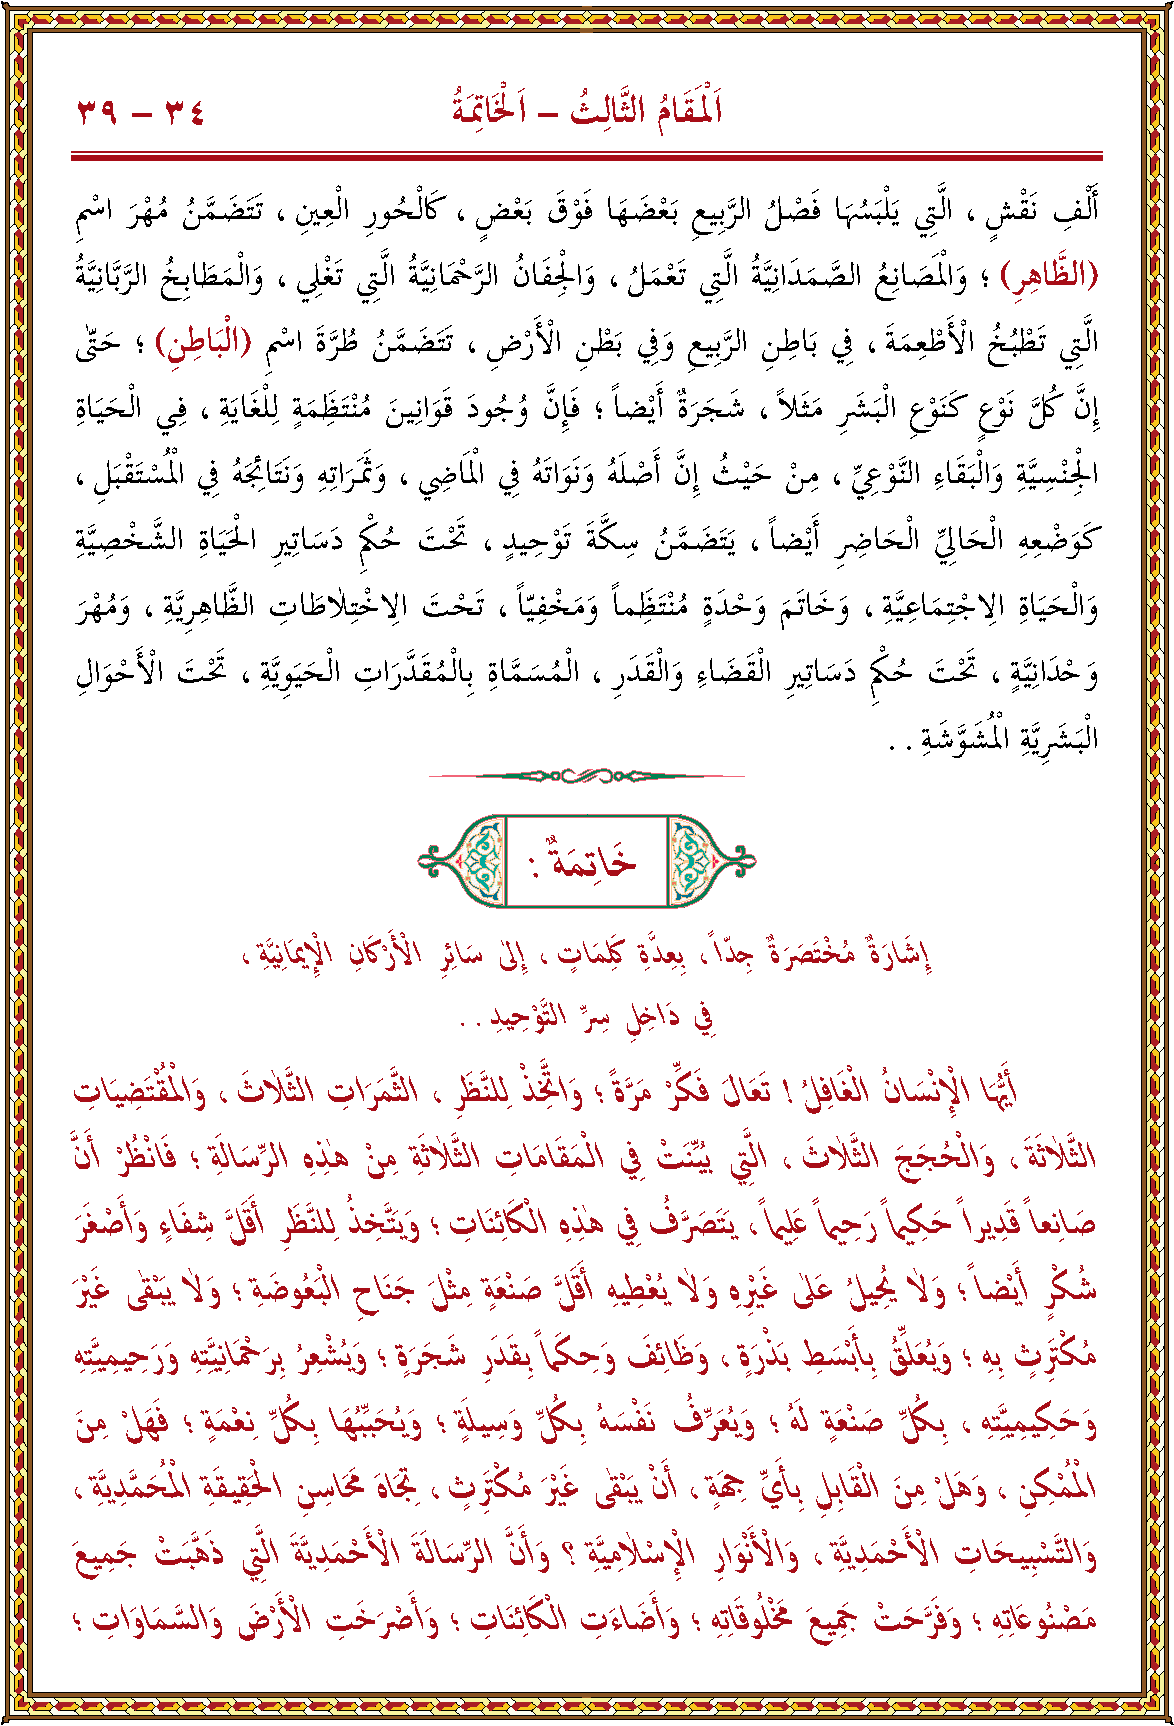 اَلْمَقَامُ الثَّالِثُ – اَلْخَاتِمَةُ ٣٤ – ٣٩
أَلْفِ نَقْشٍ ، الَّتِي يَلْبَسُهَا فَصْلُ الرَّبِيعِ بَعْضَهَا فَوْقَ بَعْضٍ ، كَالْحُورِ الْعِينِ ، تَتَضَمَّنُ مُهْرَ اسْمِ
(الظَّاهِرِ) ؛ وَالْمَصَانِعُ الصَّمَدَانِيَّةُ الَّتِي تَعْمَلُ ، وَالْجِفَانُ الرَّحْمَانِيَّةُ الَّتِي تَغْلِي ، وَالْمَطَابِخُ الرَّبَّانِيَّةُ
الَّتِي تَطْبُخُ الْأَطْعِمَةَ ، فِي بَاطِنِ الرَّبِيعِ وَفِي بَطْنِ الْأَرْضِ ، تَتَضَمَّنُ طُرَّةَ اسْمِ (الْبَاطِنِ) ؛ حَتّٰى
إِنَّ كُلَّ نَوْعٍ كَنَوْعِ الْبَشَرِ مَثَلاً ، شَجَرَةٌ أَيْضاً ؛ فَإِنَّ وُجُودَ قَوَانِينَ مُنْتَظِمَةٍ لِلْغَايَةِ ، فِي الْحَيَاةِ
الْجِنْسِيَّةِ وَالْبَقَاءِ النَّوْعِيِّ ، مِنْ حَيْثُ إِنَّ أَصْلَهُ وَنَوَاتَهُ فِي الْمَاضِي ، وَثَمَرَاتِهِ وَنَتَائِجَهُ فِي الْمُسْتَقْبَلِ ،
كَوَضْعِهِ الْحَالِيِّ الْحَاضِرِ أَيْضاً ، يَتَضَمَّنُ سِكَّةَ تَوْحِيدٍ ، تَحْتَ حُكْمِ دَسَاتِيرِ الْحَيَاةِ الشَّخْصِيَّةِ
وَالْحَيَاةِ الِاجْتِمَاعِيَّةِ ، وَخَاتَمَ وَحْدَةٍ مُنْتَظِماً وَمَخْفِيّاً ، تَحْتَ الِاخْتِلَاطَاتِ الظَّاهِرِيَّةِ ، وَمُهْرَ
وَحْدَانِيَّةٍ ، تَحْتَ حُكْمِ دَسَاتِيرِ الْقَضَاءِ وَالْقَدَرِ ، الْمُسَمَّاةِ بِالْمُقَدَّرَاتِ الْحَيَوِيَّةِ ، تَحْتَ الْأَحْوَالِ
الْبَشَرِيَّةِ الْمُشَوَّشَةِ . .
خَاتِمَةٌ :
إِشَارَةٌ مُخْتَصَرَةٌ جِدّاً ، بِعِدَّةِ كَلِمَاتٍ ، إِلَى سَائِرِ الْأَرْكَانِ الْإِيمَانِيَّةِ ،
فِي دَاخِلِ سِرِّ التَّوْحِيدِ . .
أَيُّهَا الْإِنْسَانُ الْغَافِلُ ! تَعَالَ فَكِّرْ مَرَّةً ؛ وَاتَّخِذْ لِلنَّظَرِ ، الثَّمَرَاتِ الثَّلَاثَ ، وَالْمُقْتَضِيَاتِ
الثَّلَاثَةَ ، وَالْحُجَجَ الثَّلَاثَ ، الَّتِي بُيِّنَتْ فِي الْمَقَامَاتِ الثَّلَاثَةِ مِنْ هٰذِهِ الرِّسَالَةِ ؛ فَانْظُرْ أَنَّ
صَانِعاً قَدِيراً حَكِيماً رَحِيماً عَلِيماً ، يَتَصَرَّفُ فِي هٰذِهِ الْكَائِنَاتِ ؛ وَيَتَّخِذُ لِلنَّظَرِ أَقَلَّ شِفَاءٍ وَأَصْغَرَ
شُكْرٍ أَيْضاً ؛ وَلَا يُحِيلُ عَلَى غَيْرِهِ وَلَا يُعْطِيهِ أَقَلَّ صَنْعَةٍ مِثْلَ جَنَاحِ الْبَعُوضَةِ ؛ وَلَا يَبْقٰى غَيْرَ
مُكْتَرِثٍ بِهِ ؛ وَيُعَلِّقُ بِأَبْسَطِ بَذْرَةٍ ، وَظَائِفَ وَحِكَماً بِقَدَرِ شَجَرَةٍ ؛ وَيُشْعِرُ بِرَحْمَانِيَّتِهِ وَرَحِيمِيَّتِهِ
وَحَكِيمِيَّتِهِ ، بِكُلِّ صَنْعَةٍ لَهُ ؛ وَيُعَرِّفُ نَفْسَهُ بِكُلِّ وَسِيلَةٍ ؛ وَيُحَبِّبُهَا بِكُلِّ نِعْمَةٍ ؛ فَهَلْ مِنَ
الْمُمْكِنِ ، وَهَلْ مِنَ الْقَابِلِ بِأَيِّ جِهَةٍ ، أَنْ يَبْقٰى غَيْرَ مُكْتَرِثٍ ، تِجَاهَ مَحَاسِنِ الْحَقِيقَةِ الْمُحَمَّدِيَّةِ ،
وَالتَّسْبِيحَاتِ الْأَحْمَدِيَّةِ ، وَالْأَنْوَارِ الْإِسْلَامِيَّةِ ؟ وَأَنَّ الرِّسَالَةَ الْأَحْمَدِيَّةَ الَّتِي ذَهَّبَتْ جَمِيعَ
مَصْنُوعَاتِهِ ؛ وَفَرَّحَتْ جَمِيعَ مَخْلُوقَاتِهِ ؛ وَأَضَاءَتِ الْكَائِنَاتِ ؛ وَأَصْرَخَتِ الْأَرْضَ وَالسَّمَاوَاتِ ؛